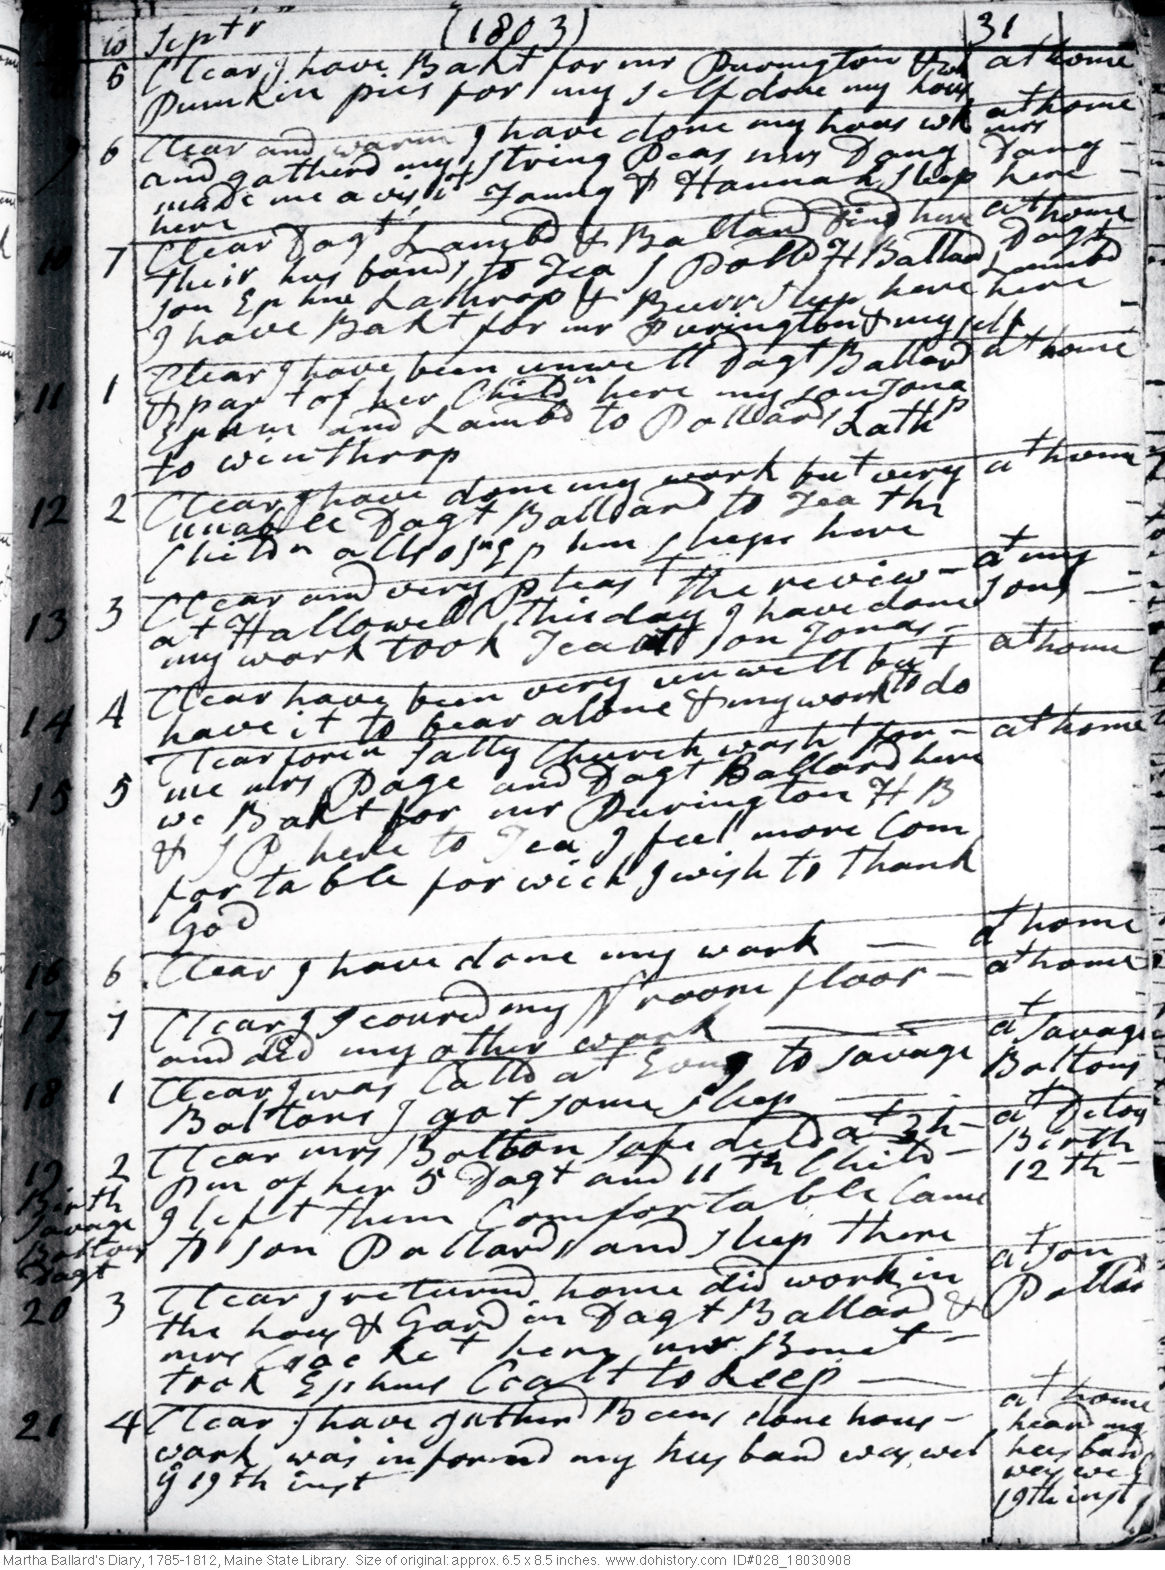 10 Septr (1803) 31
5 Clear I have Bakt for mr Purington & at home
Pumkin pies for my self done my hous
6 Clear and warm I have done my hous wk at home
and gatherd my string Peas mrs Dany mrs Dany
made me a visit Fanny & Hannah sleep here
here
10 7 Clear Dagt Lambd & Ballard Dind here at home
their husbands to Tea J Polld H Ballad Dagt Lambd
son Ephm Lathrop & Burr sleep here here
I have Bakt for mr Purington & my self
11 1 Clear I have been unwell Dagt Ballard at home
& part of her Childn here my son Jona
Ephm and Lambd to Pollards Lathp
to winthrop
12 2 Clear I have done my work but very at home
unable Dagt Ballard to Tea the
Childn allso Ephm sleeps here
13 3 Clear and very pleast the review – at my
at Hallowell this day I have done sons –
my work took Tea att son Jonas –
14 4 Clear have been very unwell but at home
have it to bear alone & my work to do
15 5 Clear foren Sally Church washt for – at home
me mrs Page and Dagt Ballard here
we Bakt for mr Purington H B
& J P here to Tea I feel more Com
fortable for wich I wish to thank
God
16 6 Clear I have done my work — at home
17 7 Clear I scoured my room floor – at home
and did my other work —
18 1 Clear I was Calld at Evng to savage at savage
Boltons I got some sleep — Boltons
19 2 Clear mrs Bolton safe deld at 3 h – at Ditoes
pm of her 5 Dagt and 11th Child – Birth 12th –
Birth savage Boltons Dagt
I left them Comfortable Came
to son Pollards and sleep there
20 3 Clear I returnd home did work in at son
the hous & Gardin Dagt Ballard & Pollads
mrs Crocket here mr Bonet –
took Ephms Coalt to keep —
21 4 Clear I have gatherd Beens done hous – at home
work was informd my husband was well heard my husband
ÿ 19th inst was well 19th inst
Martha Ballard's Diary, 1785-1812, Maine State Library. Size of original: approx. 6.5 x 8.5 inches. www.dohistory.com ID#028_18030908